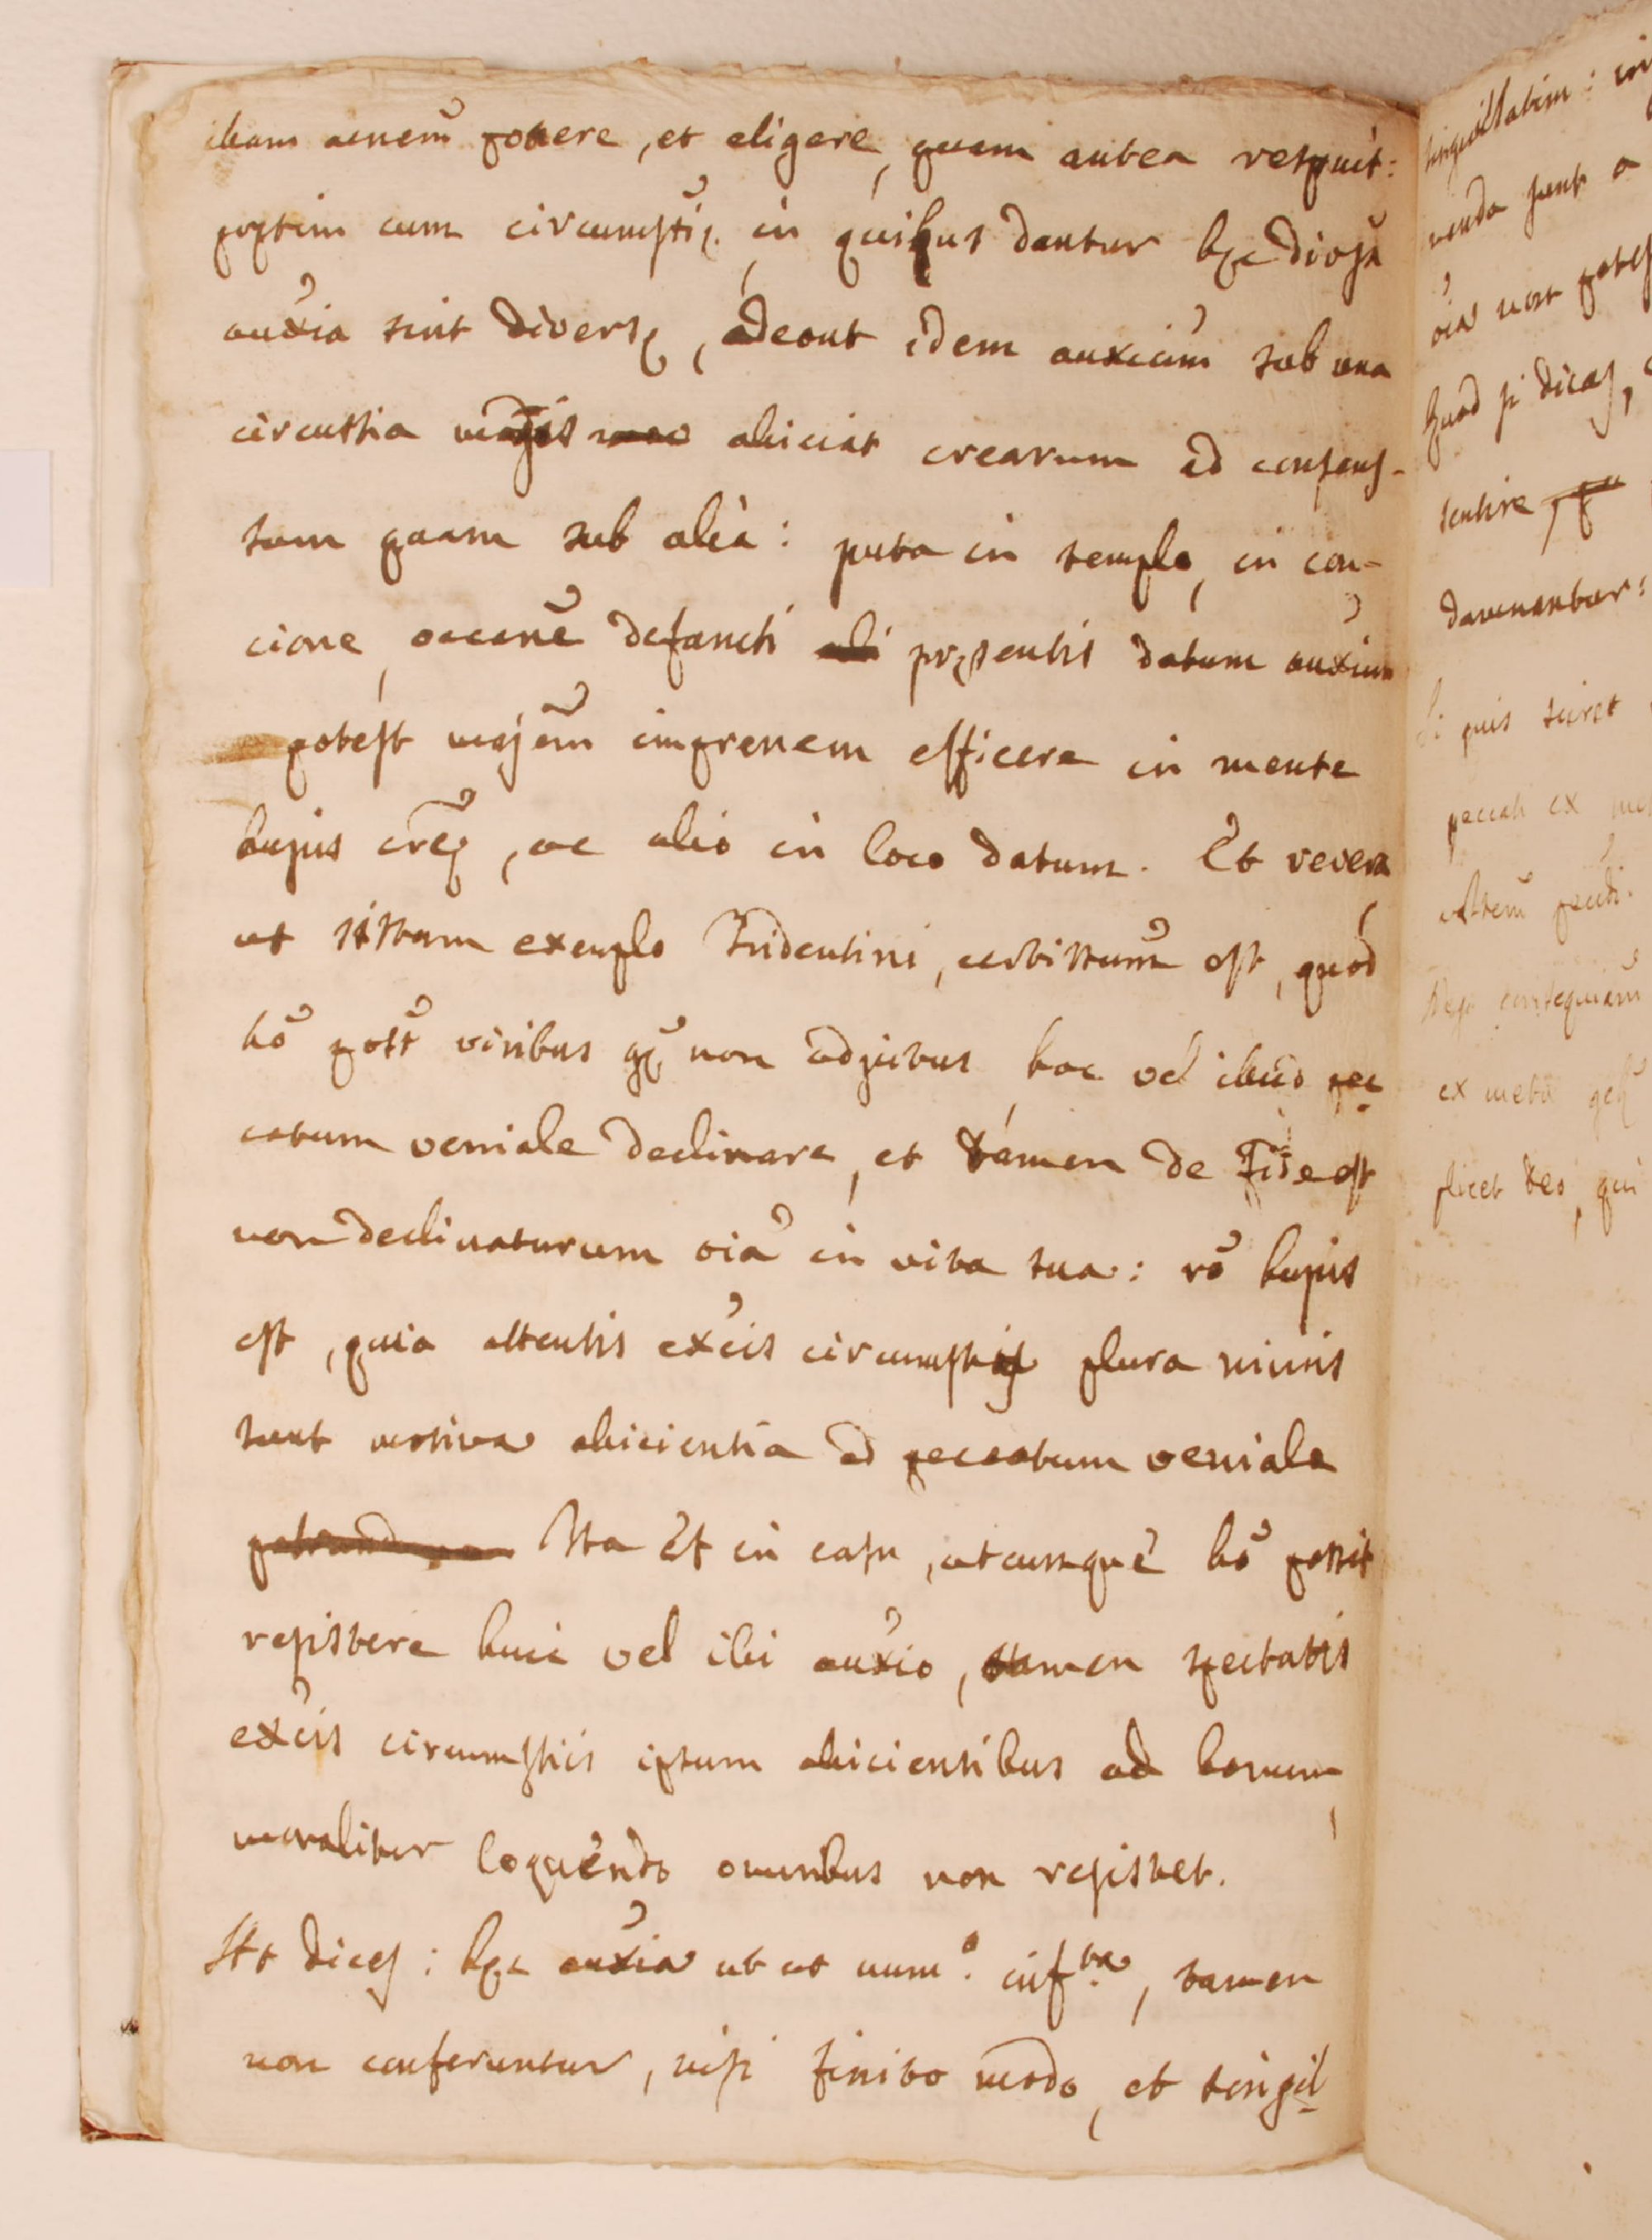 illam acnem̃ ponere, et eligere, quam antea respuit:
pręptim cum circumstię, in quibus dantur hęc divsa
auxia sint diversę, adeout idem auxium sub una
circustia magis aliciat crearum ad consens-
sum quam sub alia: puta in templo, in con-
cione, occne defuncti pręsentis datum auxium
potest majem imprenem efficere in mente
hujus creę, ac alio in loco datum. Et revera
ut sistam exemplo Tridentini, certissimum est, quod
ho post viribus gę non adjutus hoc vel illud pec
catum veniale declinare, et tamen de Fide est
non declinaturum oia in vita sua: ro hujus
est, quia attentis excis circumstiis plura nimis
sunt motiva alicientia ad peccatum veniale
Ita Et in casu, utcumque ho possit
resistere huic vel illi auxio, tamen spectatis
excis circumstiis ipsum alicientibus ad bonum,
moraliter loquendo omnibus non resistet.
At dices: hęc auxia ut ut num.º inf.ta, tamen
non conferuntur, nisi finito modo, et singil
singillatim:
venda sunt a
oia non potes
Quod si dicas,
sentire
damnantur:
Si quis sciret
peccati ex
ex metu
plicet deo, qui